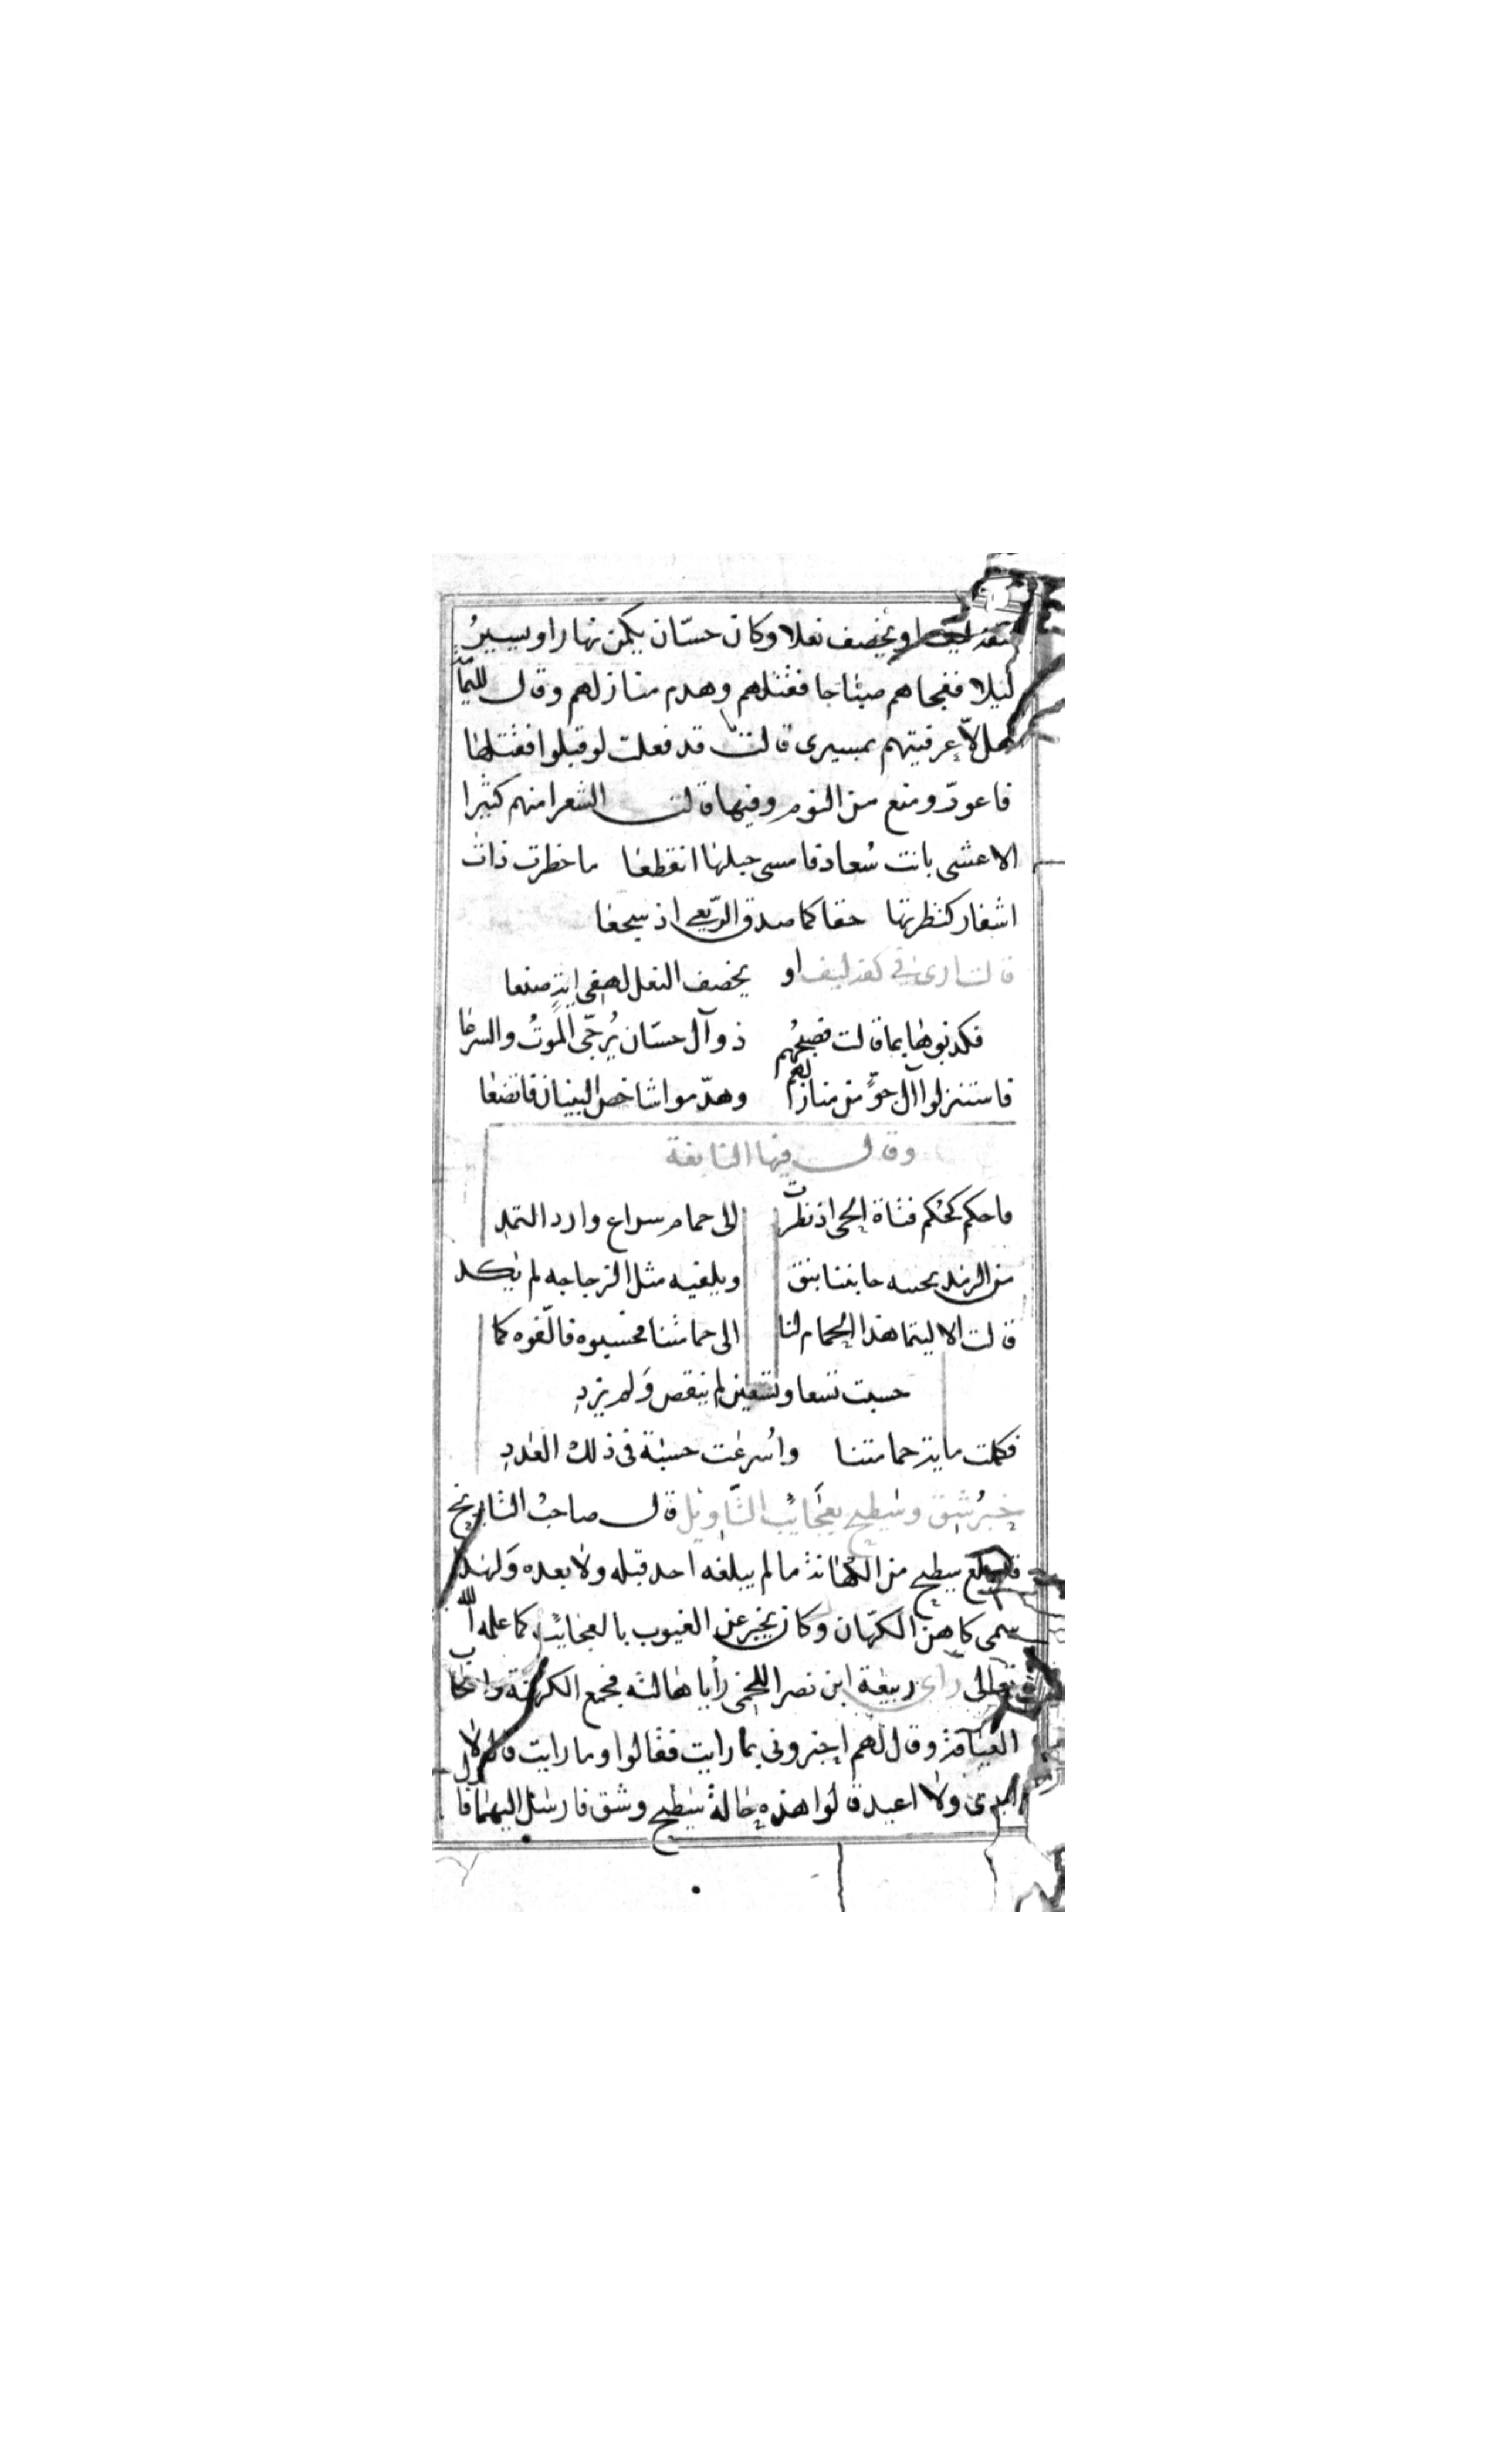 او يخصف نعلا وكان حسّان يكمن نهارا ويسيرُ
ليلا ففجاهم صباحا فقتلهم وهدم منازلهم وقال لليما
هلاّ عرفتيهم بمسيرى قالت قد فعلت لو قبلوا فقتلها
فاعودّ ومنع من النوم وفيها قالت الشعرا منهم كثيرا
الاعشى بانت سُعاد فامسى حبلها انقطعا ما خطرت ذات
اشفار كنظرتها حقا كما صدق الرّبعي اذ سجعا
قالت ارى في كفه ليف او يخصف النعل لهفى اية صنعا
فكذبوها بما قالت فصبحهُم ذو آل حسّان يُزجّى الموتُ والسرعا
فاستنزلوا آل جوٍّ من منازلهم وهدّموا شاخص البنيان فاتضعا
وقال فيها النابغة
فاحكم كحكم فتاة الحى اذ نظرت الى حمام سراع وارد الثمدِ
ويلفيه مثل الزجاجه لم تكحد
قالت الا ليتما هذا الحمام لنا الى حمامتنا فحسبوه فالّفوه كما
حسبت تسعا وتسعين لم ينقص وَلم يزدِ
فكملت ماية حمامتنا واسرعت حسبة فى ذلك العددِ
خبرُ شق وسَطيح بعجَايبُ التّاويل قال صاحبُ التاريخ
سطيح من الكهانة ما لم يبلغه احد قبله ولا بعده وَلهذا
سمى كاهن الكهّان وكان يخبر عن الغيوب بالعجائب كما علمه الله
تعالى رأى ربيعة ابن نصر اللخمى رأيا هالته فجمع الكهنة واصحاب
العيافة وقال لهم اخبرونى بما رايت فقالوا وما رايت قال لا
ابدى ولا اعيد قالوا هذه حالة سَطيح وشق فارسَل اليهما فا